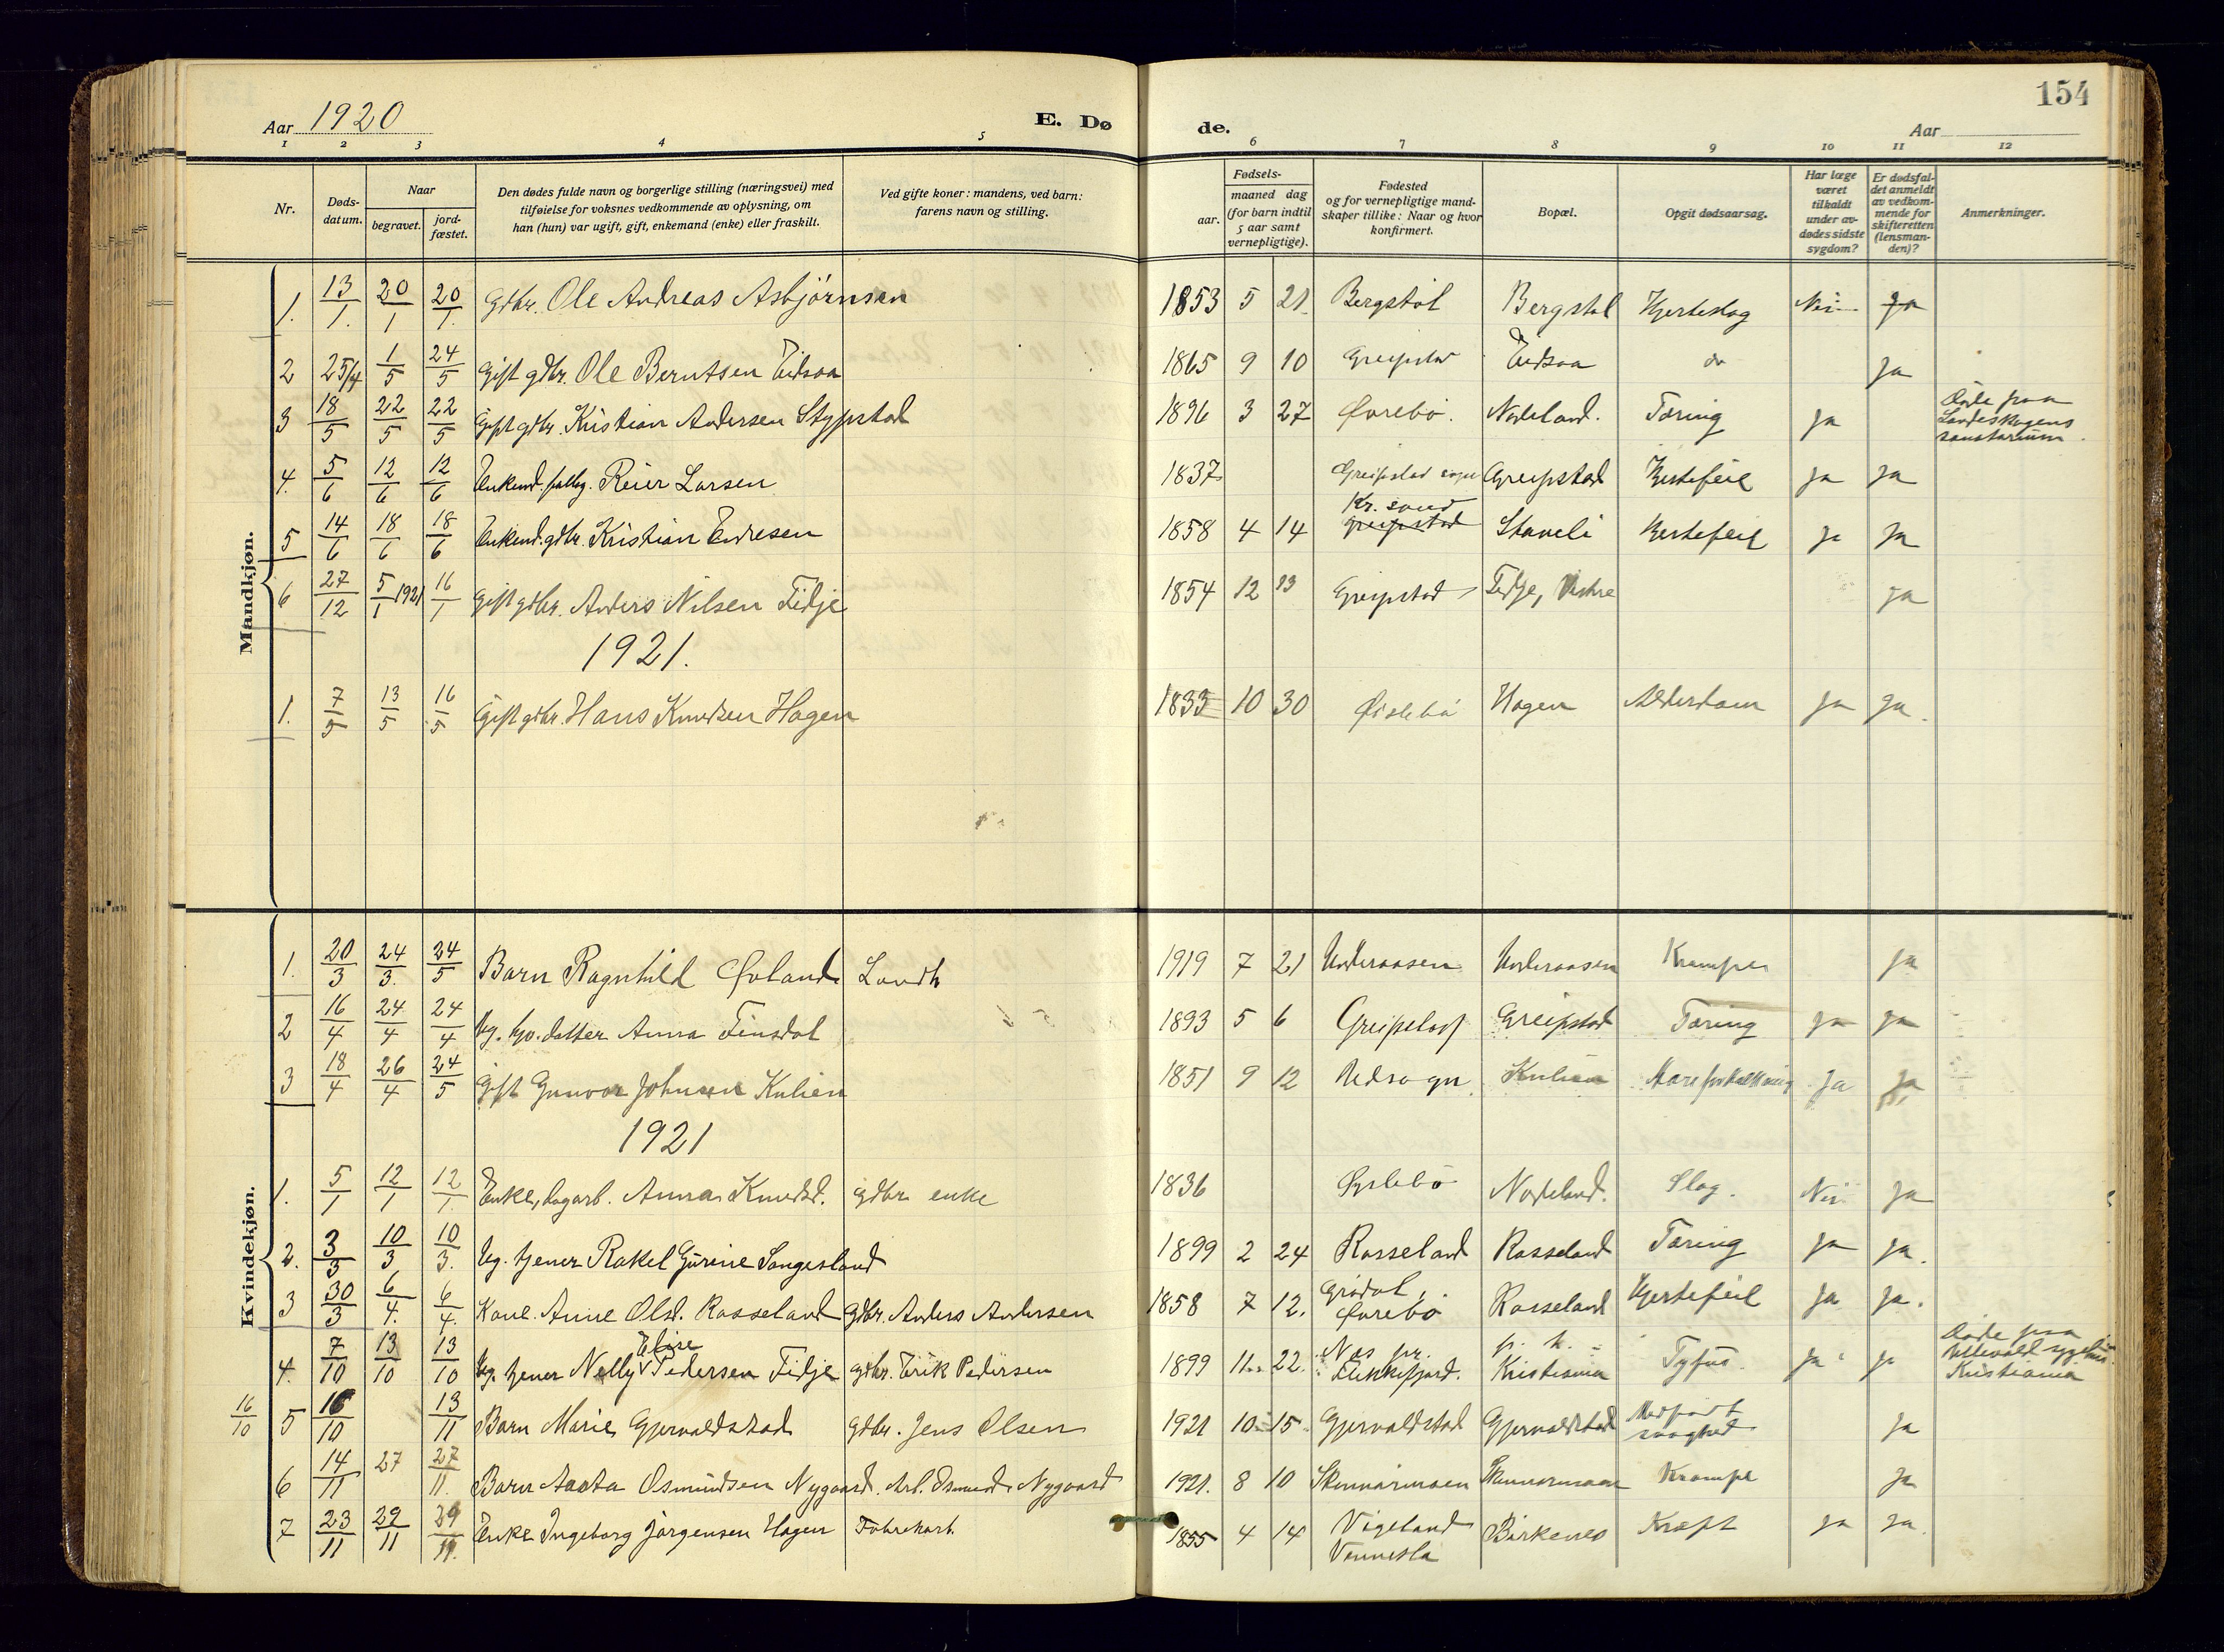 154
Aar 1920
E. Dø
de.
Aar
1 2 3 4 5 6 7 8 9 10 11 12
Nr.
Døds-
datum.
Naar
begravet.
jord-
fæstet.
Den dødes fulde navn og borgerlige stilling (næringsvei) med
tilføielse for voksnes vedkommende av oplysning, om
han (hun) var ugift, gift, enkemand (enke) eller fraskilt.
Ved gifte koner: mandens, ved barn:
farens navn og stilling.
Fødsels-
aar.
maaned dag
(for barn indtil
5 aar samt
vernepligtige).
Fødested
og for vernepligtige mand-
skaper tillike: Naar og hvor
konfirmert.
Bopæl.
Opgit dødsaarsag.
Har læge
været
tilkaldt
under av-
dødes sidste
sygdom?
Er dødsfal-
det anmeldt
av vedkom-
mende for
skifteretten
(lensman-
den)?
Anmerkninger.
Mandkjøn.
1. 13/1. 20/1 20/1. Gdbr. Ole Andreas Asbjørnsen 1853 5 21 Bergstøl Bergstøl Hjerteslag Nei Ja
2 25/4 1/5 24/5 Gift gdbr. Ole Berntsen Eidsaa 1865 9 10 Greipstad Eidsaa do Ja
3 18/5 22/5 22/5 Gift gdbr. Kristian Andersen Stypstad 1896 3 27 Øvrebø. Nodeland. Tæring Ja Døde paa
Landeskogens
sanatorium.
4. 5/6 12/6 12/6 Enkemd. Reier Larsen 1837 Greipstad sogn Greipstad Hjertefeil Ja Ja
5 14/6 18/6 18/6 Enkemd. gdbr. Kristian Endresen 1858 4 14 Kr. sand
Greipstad Staveli Hjertefeil Ja Ja
6 27/12 5/1 1921 16/1 Gift gdbr. Anders Nilsen Fidje 1854 12 13 Greipstad Fidje, Vestre Ja
1921.
1. 7/5 13/5 16/5 Gift gdbr. Hans Knudsen Hagen 1833 10 30 Øislebø Hagen Alderdom Ja Ja.
Kvindekjøn.
1. 20/3 24/3. 24/5 Barn Ragnhild Øvland 1919 7 21 Underaasen Underaasen Krampe Ja
2 16/4 24/4 24/4 Ug. datter Anna Finsdal 1893 5 6 Greipstad Tæring Ja Ja
3 18/4 26/4 24/5 Gift Gunvor Johnsen Kulien 1851 9 12 Udsogn Kulien Aareforkalkning Ja Ja
1921
1. 5/1 12/1 12/1. Enke, dagarb. Anna Knudsd. gdbr enke 1836 Øyslebø Nodeland. Slag. Nei Ja
2. 3/3 10/3 10/3. Ug. tjener Rakel Gurine Langesland 1899 2 24 Rosseland Rosseland Tæring Ja Ja.
3 30/3 6/4. 6/4. Kone Anne Olsd. Rosseland Gdbr. Anders Andersen 1858 7 12. Grødal,
Øvrebø Rosseland Hjertefeil Ja Ja.
4. 7/10 13/10 13/10 Ug. tjener Nelly Elise Pedersen Fidje gdbr. Erik Pedersen 1899 11. 22. Nes pr.
Flekkefjord. Kristiania Tyfus. Ja Ja Døde paa
Ullevold sygehus
Kristiania
16/10 5 16/10 13/11 Barn Marie Gjervoldstad gdbr. Jens Olsen 1921 10 15 Gjervoldstad Gjervoldstad Medfødt
svaghed Ja
6 14/11 27 27/11. Barn Aasta Osmundsen Nygaard. Arb. Osmund Nygaard 1921. 8 10 Skinnarmoen Skinnarmoen Krampe Ja
7 23/11 29/11 29/11. Enke Ingeborg Jørgensen Hagen Fabrikarb. 1855 4 14 Vigeland
Vennesla Birkenes Kræft Ja Ja.